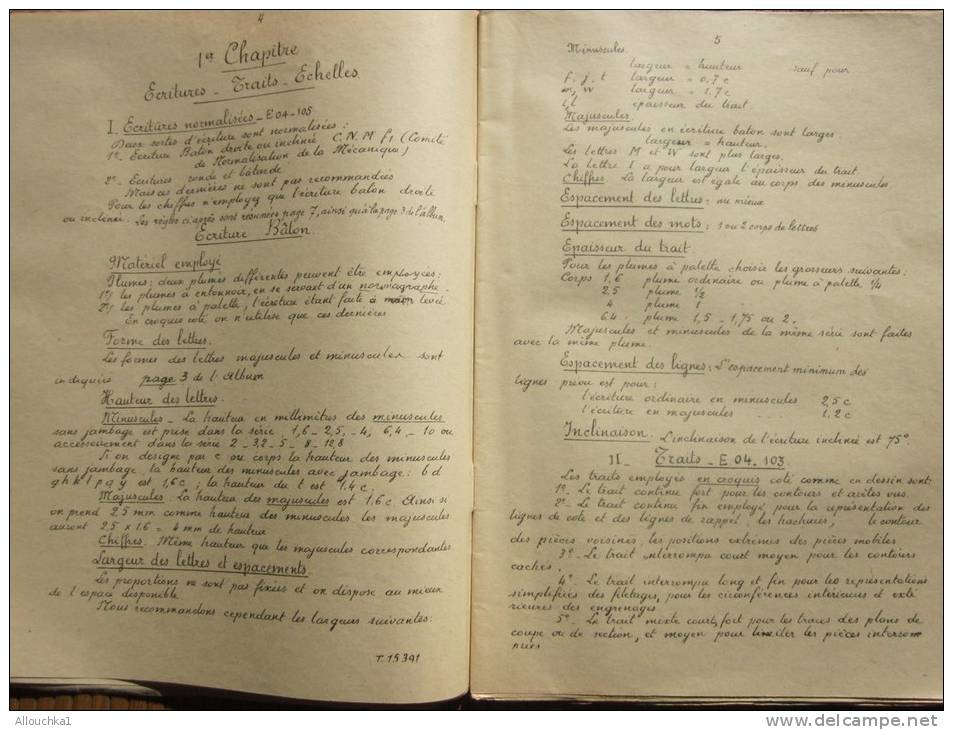 4
1er Chapitre
Ecritures - Traits - Echelles.
I Ecritures normalisées - E 04-105
Deux sortes d'écriture sont normalisées :
1º Ecriture Bâton droite ou inclinée C.N.M f1 (Comité
de Normalisation de la Mécanique)
2º Ecritures ronde et bâtarde
Mais ces dernières ne sont pas recommandées
Pour les chiffres n'employez que l'écriture bâton droite
ou inclinée. Les règles ci après sont résumées page 7, ainsi qu'à la page 3 de l'album.
Ecriture Bâton.
Matériel employé
Plumes : deux plumes différentes peuvent être employées :
1º) les plumes à entonnoir, en se servant d'un normographe
2º) les plumes à palette, l'écriture étant faite à main levée.
En croquis coté on n'utilise que ces dernières
Forme des lettres.
Les formes des lettres majuscules et minuscules sont
indiquées page 3 de l'Album
Hauteur des lettres.
Minuscules - La hauteur en millimètres des minuscules
sans jambage est prise dans la série. 1,6 - 2,5, - 4, 6,4 - 10 ou
accessoirement dans la série 2 - 3,2 - 5 - 8 - 12,8
Si on désigne par c ou corps la hauteur des minuscules
sans jambage, la hauteur des minuscules avec jambage : b d
g h k l p q y est 1,6 c ; la hauteur du t est 1,4 c.
Majuscules. La hauteur des majuscules est 1,6 c. Ainsi si
on prend 2,5 mm comme hauteur des minuscules les majuscules
auront 2,5 x 1,6 = 4 mm de hauteur
Chiffres. Même hauteur que les majuscules correspondantes
Largeur des lettres et espacements.
Les proportions ne sont pas fixées et on dispose au mieux
de l'espace disponible.
Nous recommandons cependant les largeurs suivantes :
T.15391
5
Minuscules.
largeur = hauteur sauf pour
f. j. t largeur = 0,7 c
m, w largeur = 1,7 c
i, l épaisseur du trait.
Majuscules
Les majuscules en écriture bâton sont larges :
largeur = hauteur.
Les lettres M et W sont plus larges.
La lettre I a pour largeur l'épaisseur du trait.
Chiffres. La largeur est égale au corps des minuscules
Espacement des lettres : au mieux
Espacement des mots : 1 ou 2 corps de lettres
Epaisseur du trait.
Pour les plumes à palette choisir les grosseurs suivantes :
Corps 1,6 plume ordinaire ou plume à palette 1/4
2,5 plume 1/2
4 plume 1
6,4 plume 1,5 - 1,75 ou 2.
Majuscules et minuscules de la même série sont faites
avec la même plume.
Espacement des lignes : L'espacement minimum des
lignes prévu est pour :
l'écriture ordinaire en minuscules 2,5 c
l'écriture en majuscules . . . 1,2 c
Inclinaison. L'inclinaison de l'écriture inclinée est 75°.
II - Traits - E 04-103.
Les traits employés en croquis coté comme en dessin sont
1º - Le trait continu fort pour les contours et arêtes vus.
2º - Le trait continu fin employé pour la représentation des
lignes de cote et des lignes de rappel, les hachures, le contour
des pièces voisines, les positions extrêmes des pièces mobiles
3º - Le trait interrompu court moyen pour les contours
cachés.
4º - Le trait interrompu long et fin pour les représentations
simplifiées des filetages, pour les circonférences intérieures et exté
rieures des engrenages
5º - Le trait mixte court, fort pour les traces des plans de
coupe ou de section, et moyen pour limiter les pièces interrom
pues
Allouchka1
www.delcampe.net